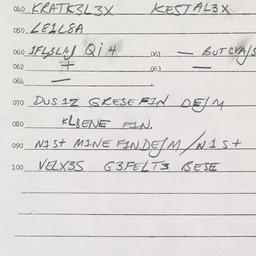 040 KRATK3L3X KESTAL3X
050 LE1L8A
060 1FLSLAJ Qi4 061 — BUTCVA/S
062 + 063 —
064 —
070 DUS1Z GRESEFIN DE/M
080 KLBENE FIN.
090 N1St M1NE FINDE/M/N1St
100 VELX3S G3FELT3 BESE